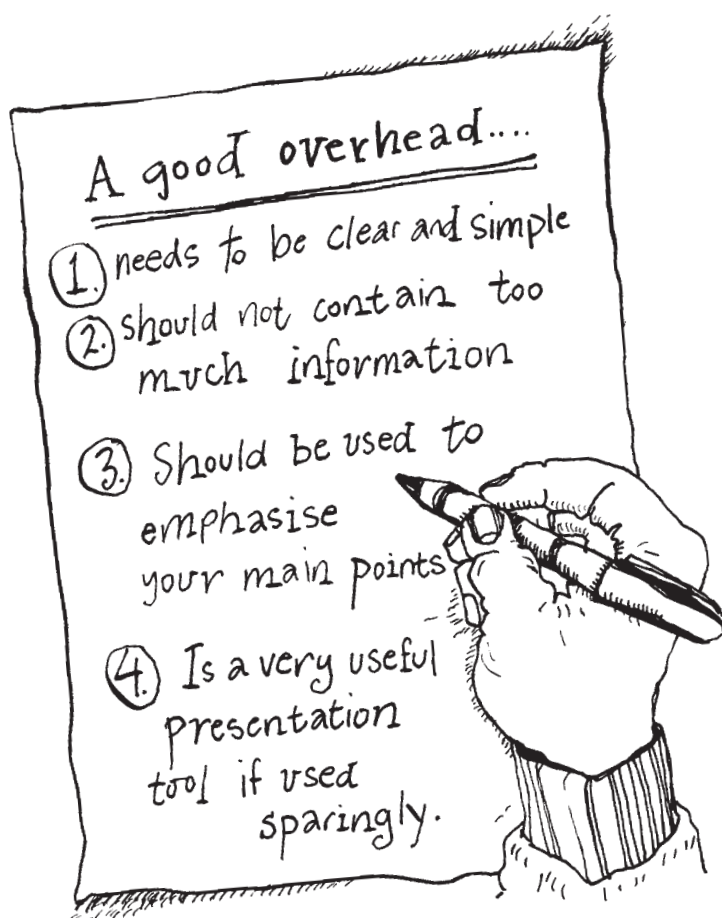 A good overhead....
1. needs to be clear and simple
2. should not contain too
much information
3. Should be used to
emphasise
your main points
4. Is a very useful
presentation
tool if used
sparingly.